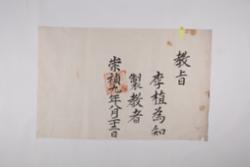 教旨
李植為知
製教者
崇禎九年八月 日